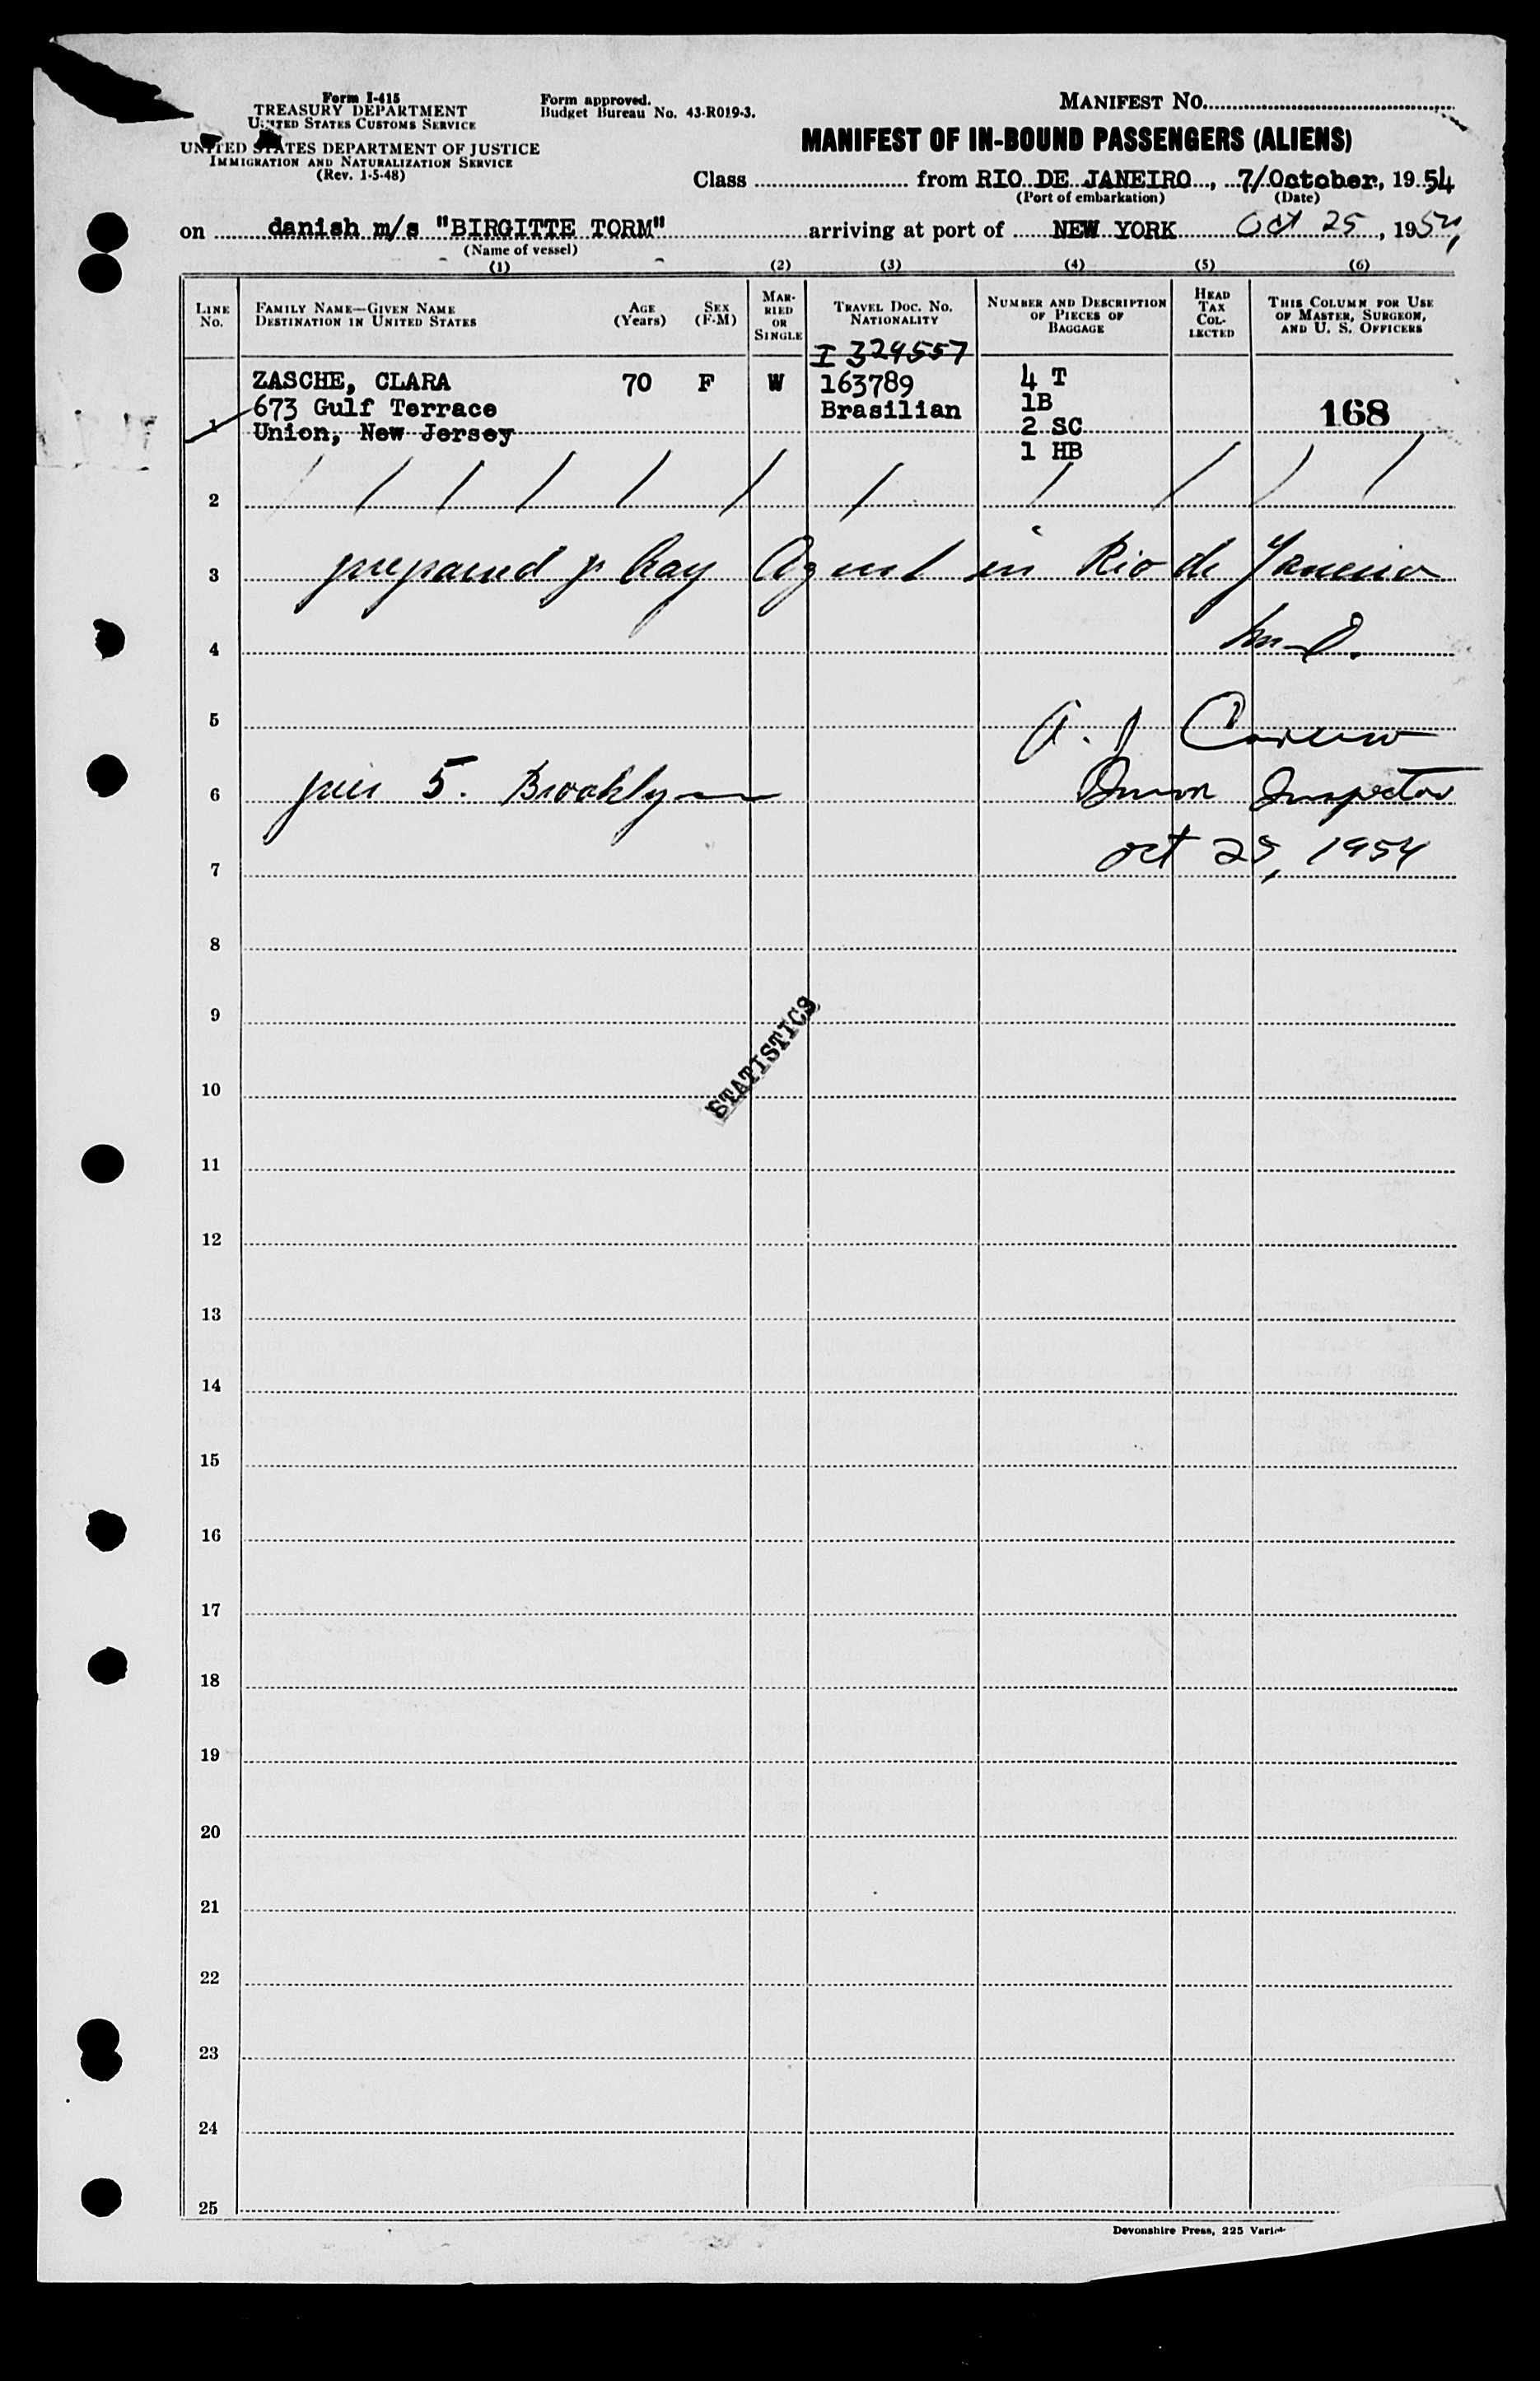 Form I-415
TREASURY DEPARTMENT
UNITED STATES CUSTOMS SERVICE
UNITED STATES DEPARTMENT OF JUSTICE
IMMIGRATION AND NATURALIZATION SERVICE
(Rev. 1-5-48)
Form approved.
Budget Bureau No. 43-R019-3.
MANIFEST NO.
MANIFEST OF IN-BOUND PASSENGERS (ALIENS)
Class from RIO DE JANEIRO, 7/October, 1954
(Port of embarkation) (Date)
on danish m/s "BIRGITTE TORM" arriving at port of NEW YORK Oct 25, 1954
(Name of vessel)
(1) (2) (3) (4) (5) (6)
LINE NO.
FAMILY NAME—GIVEN NAME
DESTINATION IN UNITED STATES
AGE (Years)
SEX (F-M)
MARRIED OR SINGLE
TRAVEL DOC. NO.
NATIONALITY
NUMBER AND DESCRIPTION OF PIECES OF BAGGAGE
HEAD TAX COLLECTED
THIS COLUMN FOR USE OF MASTER, SURGEON, AND U. S. OFFICERS
I 329557
ZASCHE, CLARA 70 F W 163789 4 T
673 Gulf Terrace Brasilian 1B 168
1 Union, New Jersey 2 SC
1 HB
2
3 prepared Agent in Rio de Janeiro
4
5 A. J.
6 pier 5. Brooklyn Immn Inspector
oct 25, 1954
7
8
9
STATISTICS
10
11
12
13
14
15
16
17
18
19
20
21
22
23
24
25
Devonshire Press, 225